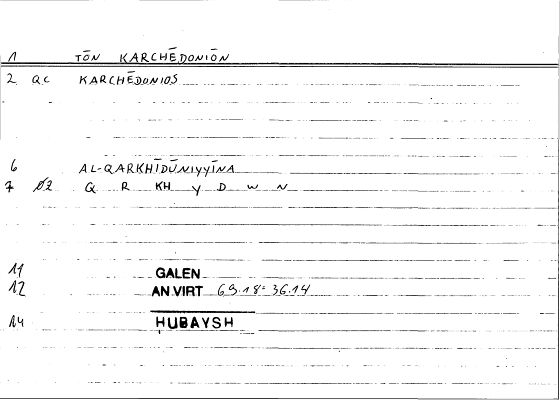 1 TŌN KARCHĒDONIŌN
2 QC KARCHĒDONIOS
6 AL-QARKHĪDŪNIYYĪNA
7 02 Q R KH Y D W N
11 GALEN
12 AN VIRT 69.18 = 36.14
14 HUBAYSH